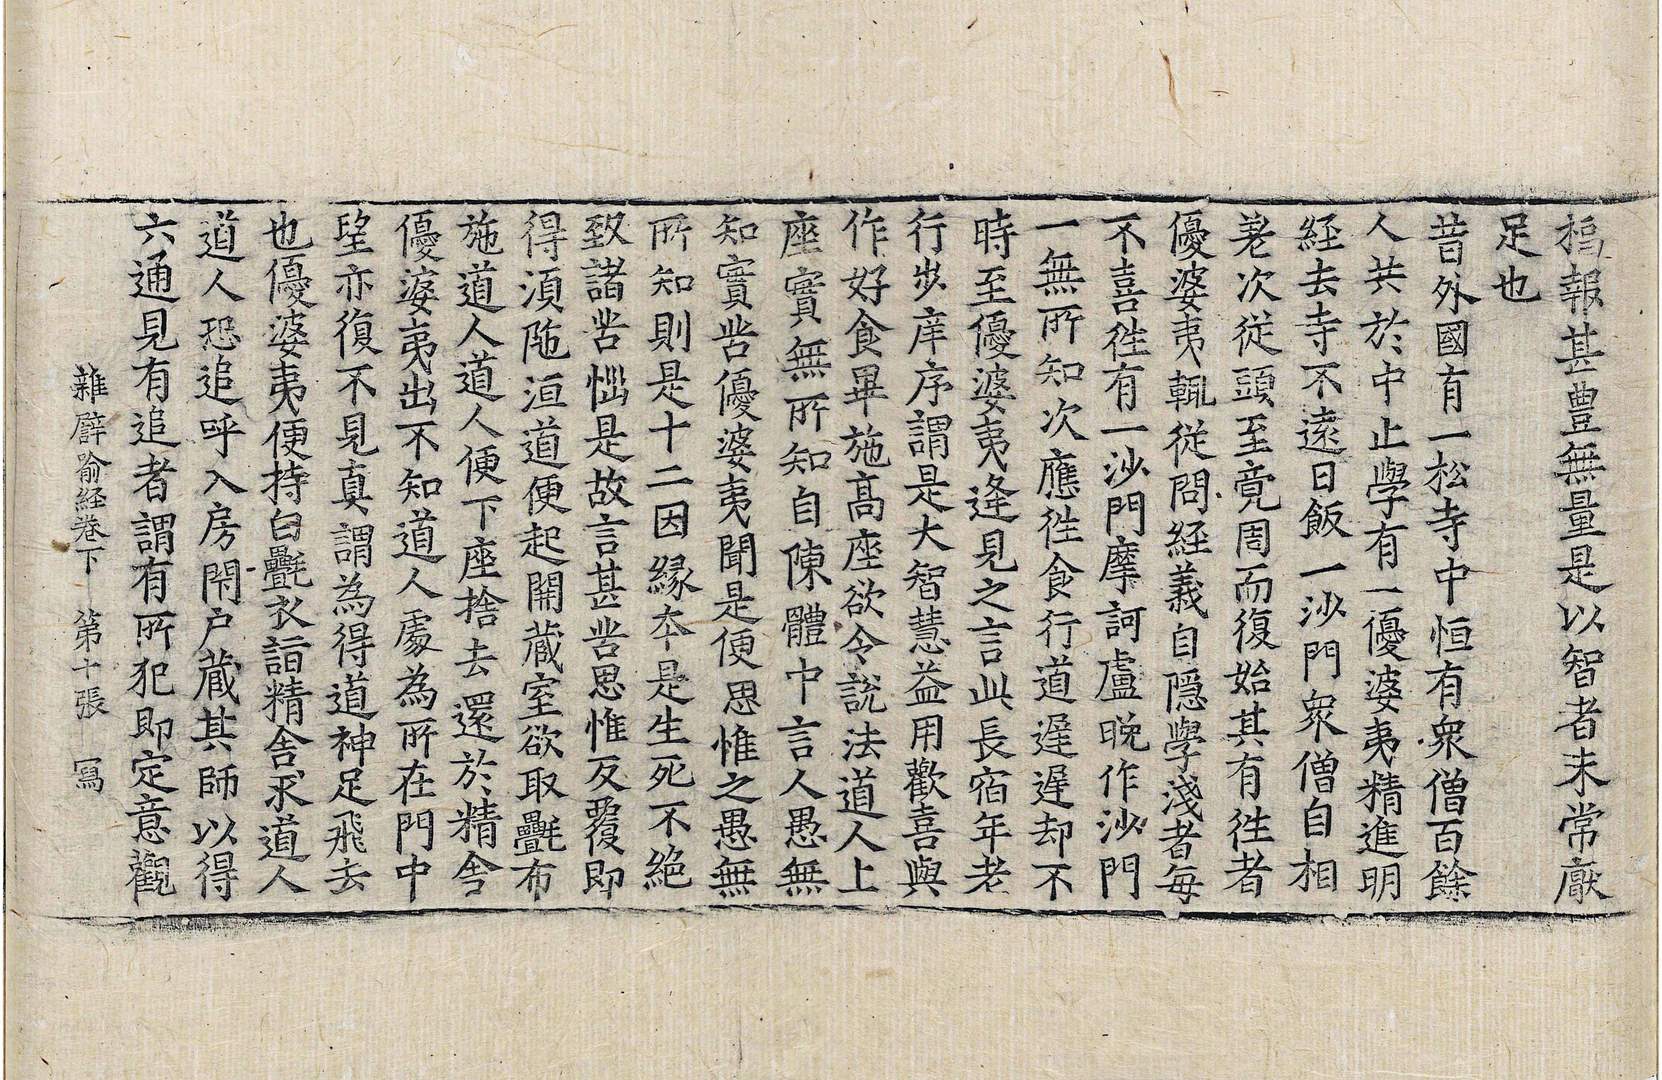 福報甚豊無量是以智者未常厭
足也
昔外國有一松寺中恒有衆僧百餘
人共於中止學有一優婆夷精進明
経去寺不遠日飯一沙門衆僧自相
差次従頭至竟周而復始其有徃者
優婆夷輒従問経義自隠學淺者每
不喜徃有一沙門摩訶盧晩作沙門
一無所知次應徃食行道遲遲却不
時至優婆夷逢見之言此長宿年老
行步庠序謂是大智慧益用歡喜與
作好食畢施高座欲令說法道人上
座實無所知自陳體中言人愚無
知實苦優婆夷聞是便思惟之愚無
所知則是十二因縁本是生死不絶
致諸苦惱是故言甚苦思惟反覆即
得湏陁洹道便起開蔵室欲取㲲布
施道人道人便下座捨去還於精舎
優婆夷出不知道人處為所在門中
望亦復不見真謂為得道神足飛去
也優婆夷便持白㲲衣詣精舎求道人
道人恐追呼入房閇户蔵其師以得
六通見有追者謂有所犯即定意觀
雜譬喻経卷下 第十張 冩